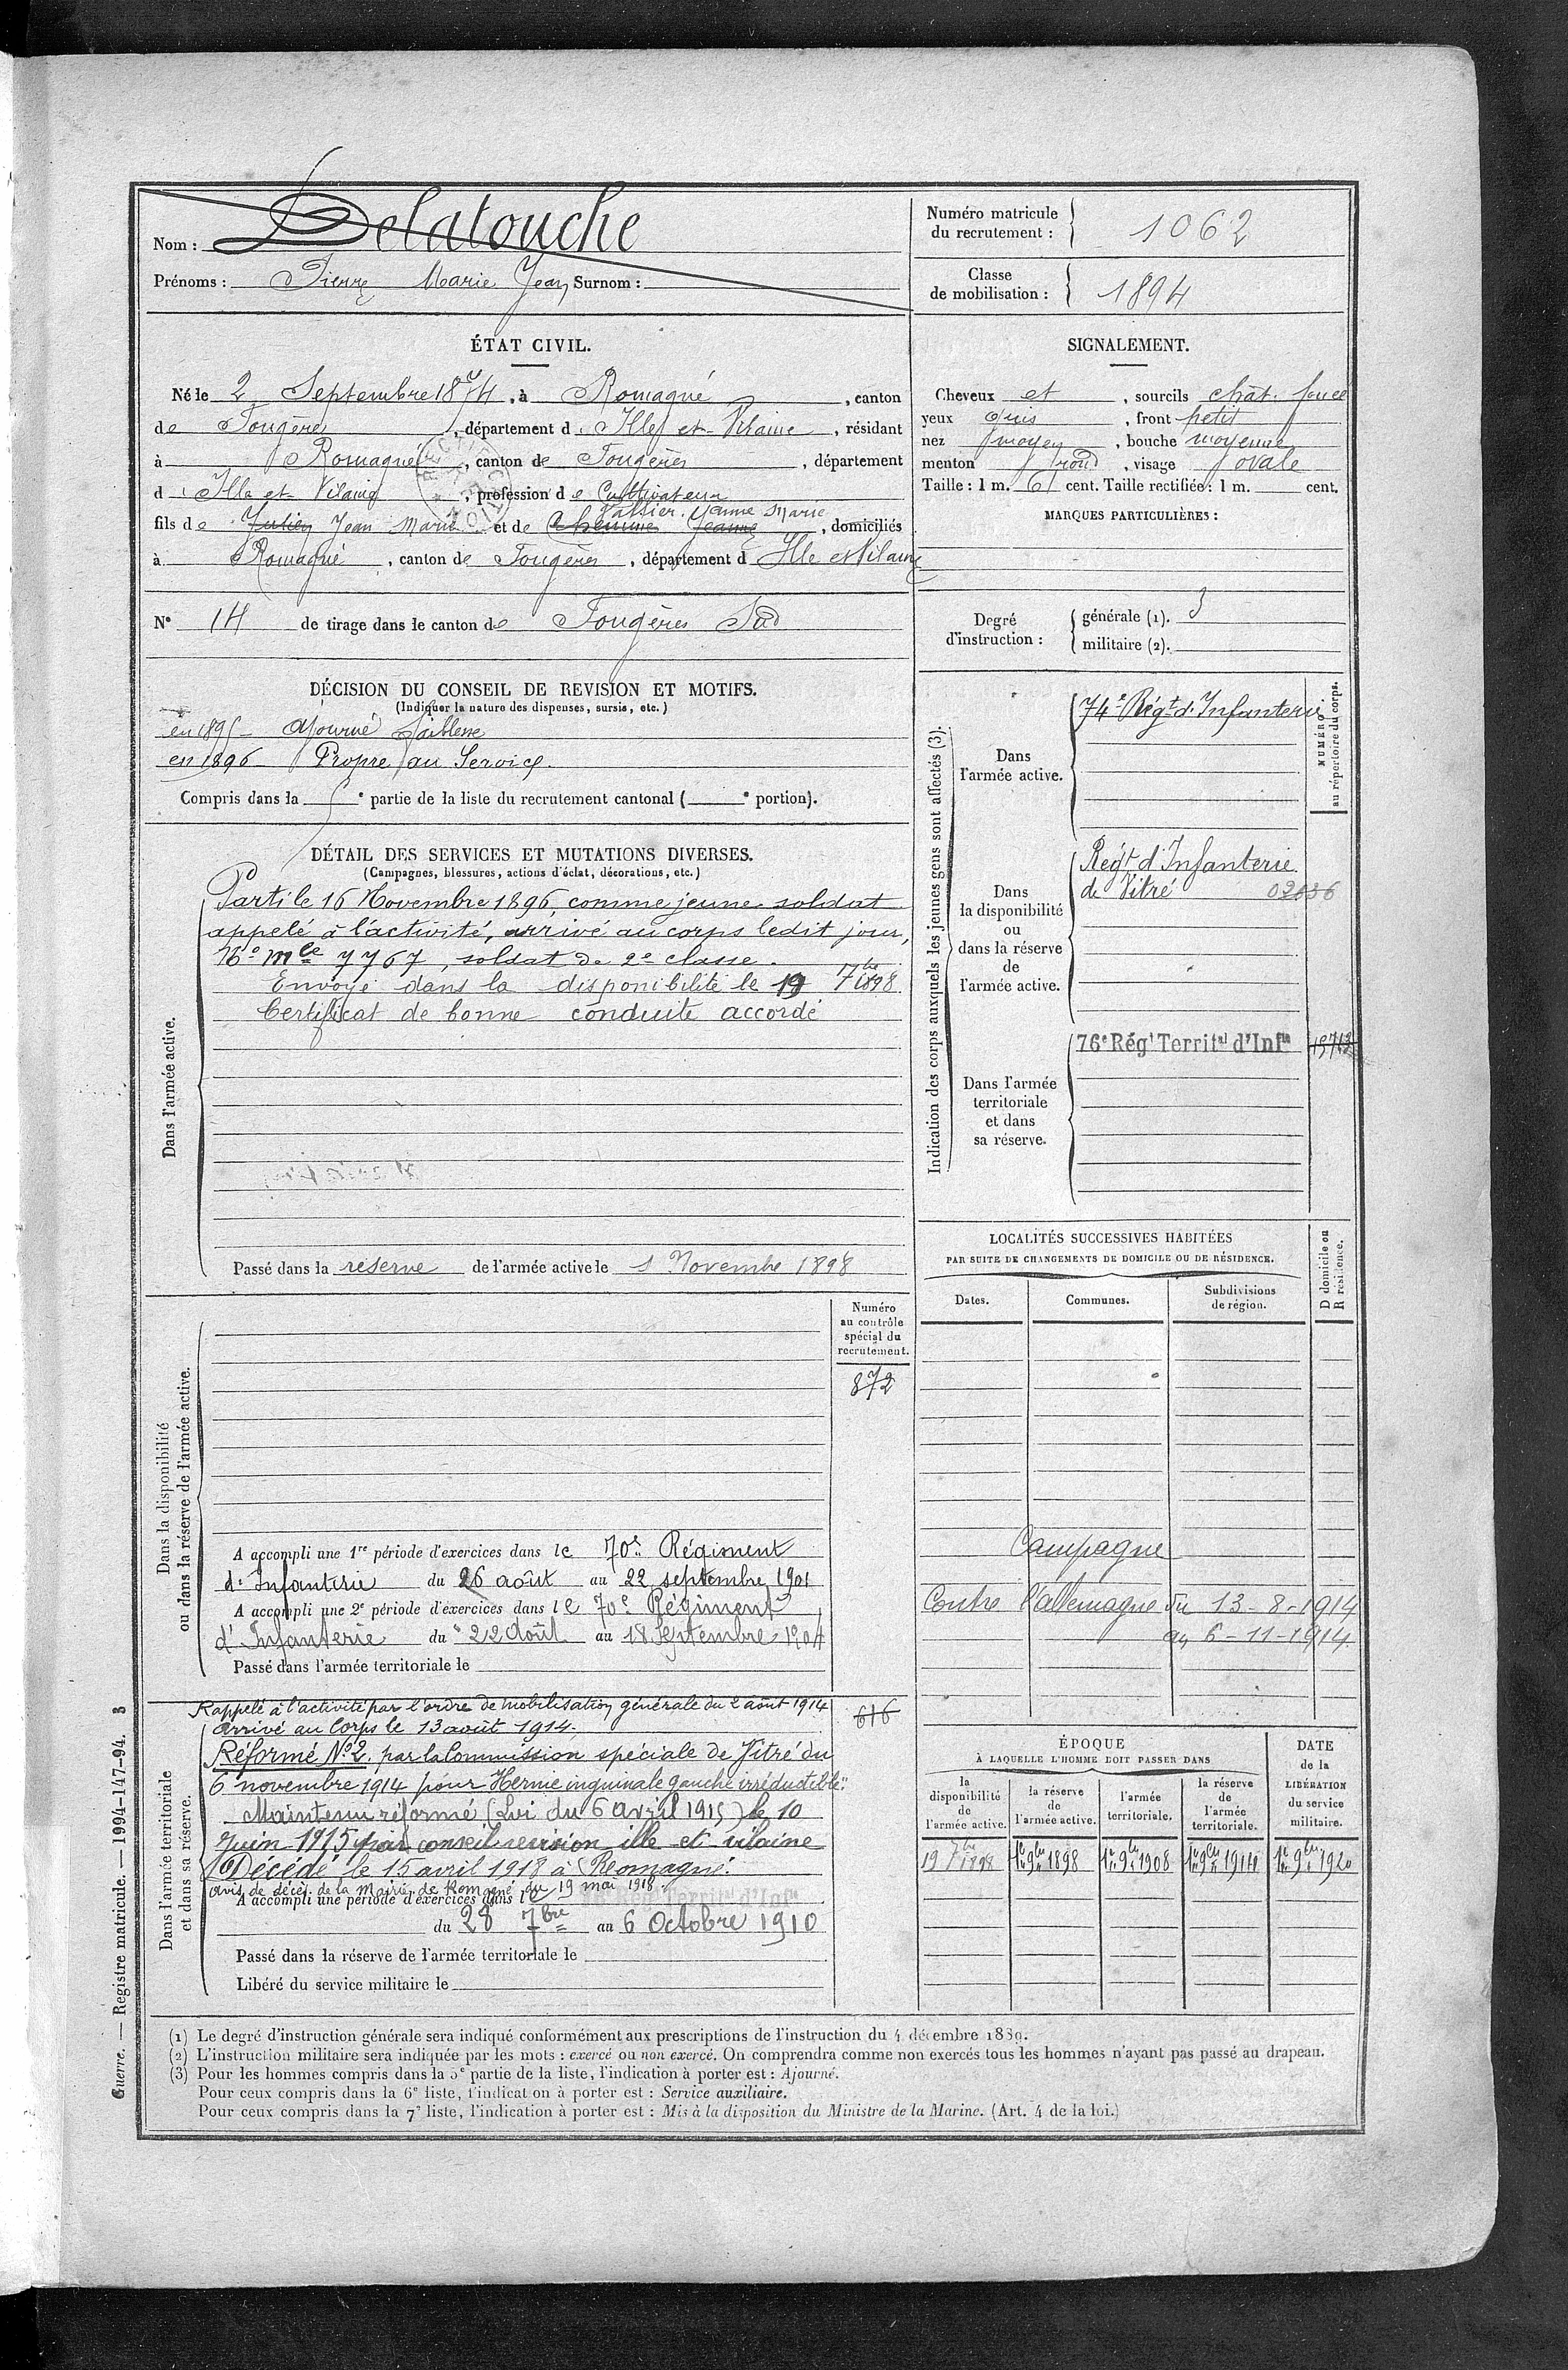 Nom : Delatouche
Prénoms : Pierre Marie Jean Surnom :
Numéro matricule du recrutement : 1062
Classe de mobilisation : 1894
ÉTAT CIVIL.
Né le 2 Septembre 1874, à Romagné, canton
de Fougères, département d'Ille et Vilaine, résidant
à Romagné, canton de Fougères, département
d'Ille et Vilaine, profession de Cultivateur
Vallier. Jeanne Marie
fils de Julien Jean Marie et de Jeanne, domiciliés
à Romagné, canton de Fougères, département d Ille et Vilaine
N° 14 de tirage dans le canton de Fougères Sud
SIGNALEMENT.
Cheveux et, sourcils chât. foncé
yeux gris, front petit
nez moyen, bouche moyenne
menton rond, visage ovale
Taille : 1 m. 61 cent. Taille rectifiée : 1 m. cent.
MARQUES PARTICULIÈRES :
Degré d'instruction : générale (1). 3
militaire (2).
DÉCISION DU CONSEIL DE REVISION ET MOTIFS.
(Indiquer la nature des dispenses, sursis, etc.)
en 1895 - Ajourné faiblesse
en 1896 - Propre au Service.
Compris dans la e partie de la liste du recrutement cantonal ( e portion).
DÉTAIL DES SERVICES ET MUTATIONS DIVERSES.
(Campagnes, blessures, actions d'éclat, décorations, etc.)
Dans l'armée active.
Parti le 16 Novembre 1896, comme jeune soldat
appelé à l'activité, arrivé au corps ledit jour,
No mle 7767, soldat de 2e classe.
Envoyé dans la disponibilité le 19 7bre 1898
Certificat de bonne conduite accordé
Passé dans la réserve de l'armée active le 1 Novembre 1898
Indication des corps auxquels les jeunes gens sont affectés (3).
NUMÉRO au répertoire du corps.
Dans l'armée active.
74e Régt d'Infanterie
Dans la disponibilité ou dans la réserve de l'armée active.
Régt d'Infanterie
de Vitré
Dans l'armée territoriale et dans sa réserve.
76e Régt Territal d'Infie
LOCALITÉS SUCCESSIVES HABITÉES
PAR SUITE DE CHANGEMENTS DE DOMICILE OU DE RÉSIDENCE.
Dates. Communes. Subdivisions de région. D domicile ou R résidence.
Campagne
Contre l'allemagne du 13-8-1914
au 6-11-1914
Dans la disponibilité ou dans la réserve de l'armée active.
Numéro au contrôle spécial du recrutement.
872
A accompli une 1re période d'exercices dans le 70e Régiment
d'Infanterie du 26 août au 22 septembre 1901
A accompli une 2e période d'exercices dans le 70e Régiment
d'Infanterie du 22 Août au 18 Septembre 1904
Passé dans l'armée territoriale le
Dans l'armée territoriale et dans sa réserve.
Rappelé à l'activité par l'ordre de mobilisation générale du 2 août 1914
616
Arrivé au Corps le 13 août 1914.
Réformé No 2. par la Commission spéciale de Vitré du
6 novembre 1914 pour "Hernie inguinale gauche irréductible"
Maintenu réformé (Loi du 6 avril 1915) le 10
Juin 1915 par conseil revision ille et vilaine
Décédé le 15 avril 1918 à Romagné.
avis de décès de la Mairie de Romagné du 19 mai 1918.
A accompli une période d'exercices dans le Territal d'Infie
du 28 7bre au 6 Octobre 1910
Passé dans la réserve de l'armée territoriale le
Libéré du service militaire le
ÉPOQUE
À LAQUELLE L'HOMME DOIT PASSER DANS
la disponibilité de l'armée active. la réserve de l'armée active. l'armée territoriale. la réserve de l'armée territoriale. DATE de la LIBÉRATION du service militaire.
19 7bre 1898 1er 9bre 1898 1er 9bre 1908 1er 9bre 1914 1er 9bre 1920
(1) Le degré d'instruction générale sera indiqué conformément aux prescriptions de l'instruction du 4 décembre 1889.
(2) L'instruction militaire sera indiquée par les mots : exercé ou non exercé. On comprendra comme non exercés tous les hommes n'ayant pas passé au drapeau.
(3) Pour les hommes compris dans la 5e partie de la liste, l'indication à porter est : Ajourné.
Pour ceux compris dans la 6e liste, l'indication à porter est : Service auxiliaire.
Pour ceux compris dans la 7e liste, l'indication à porter est : Mis à la disposition du Ministre de la Marine. (Art. 4 de la loi.)
Guerre. — Registre matricule. — 1994-147-94. 3